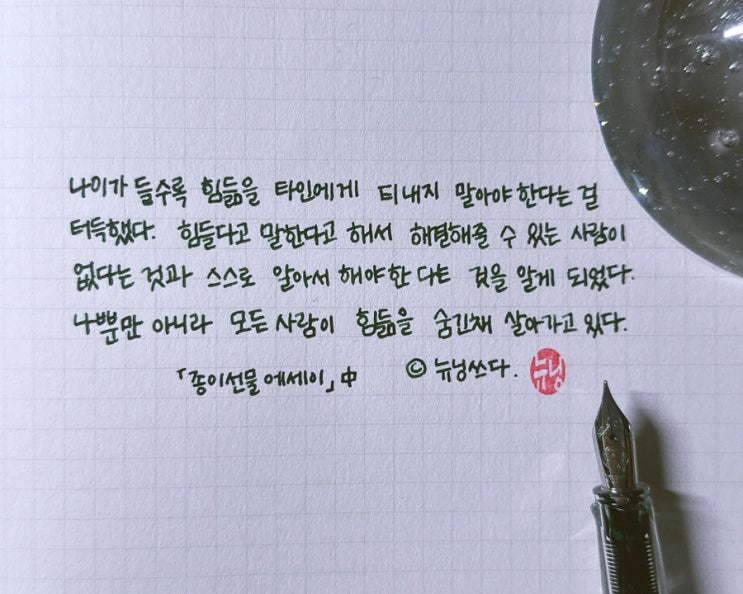 나이가 들수록 힘듦을 타인에게 티내지 말아야 한다는 걸
터득했다. 힘들다고 말한다고 해서 해결해줄 수 있는 사람이
없다는 것과 스스로 알아서 해야한 다는 것을 알게 되었다.
나뿐만 아니라 모든 사람이 힘듦을 숨긴채 살아가고 있다.
「종이선물 에세이」中 © 뉴닝쓰다. 뉴닝